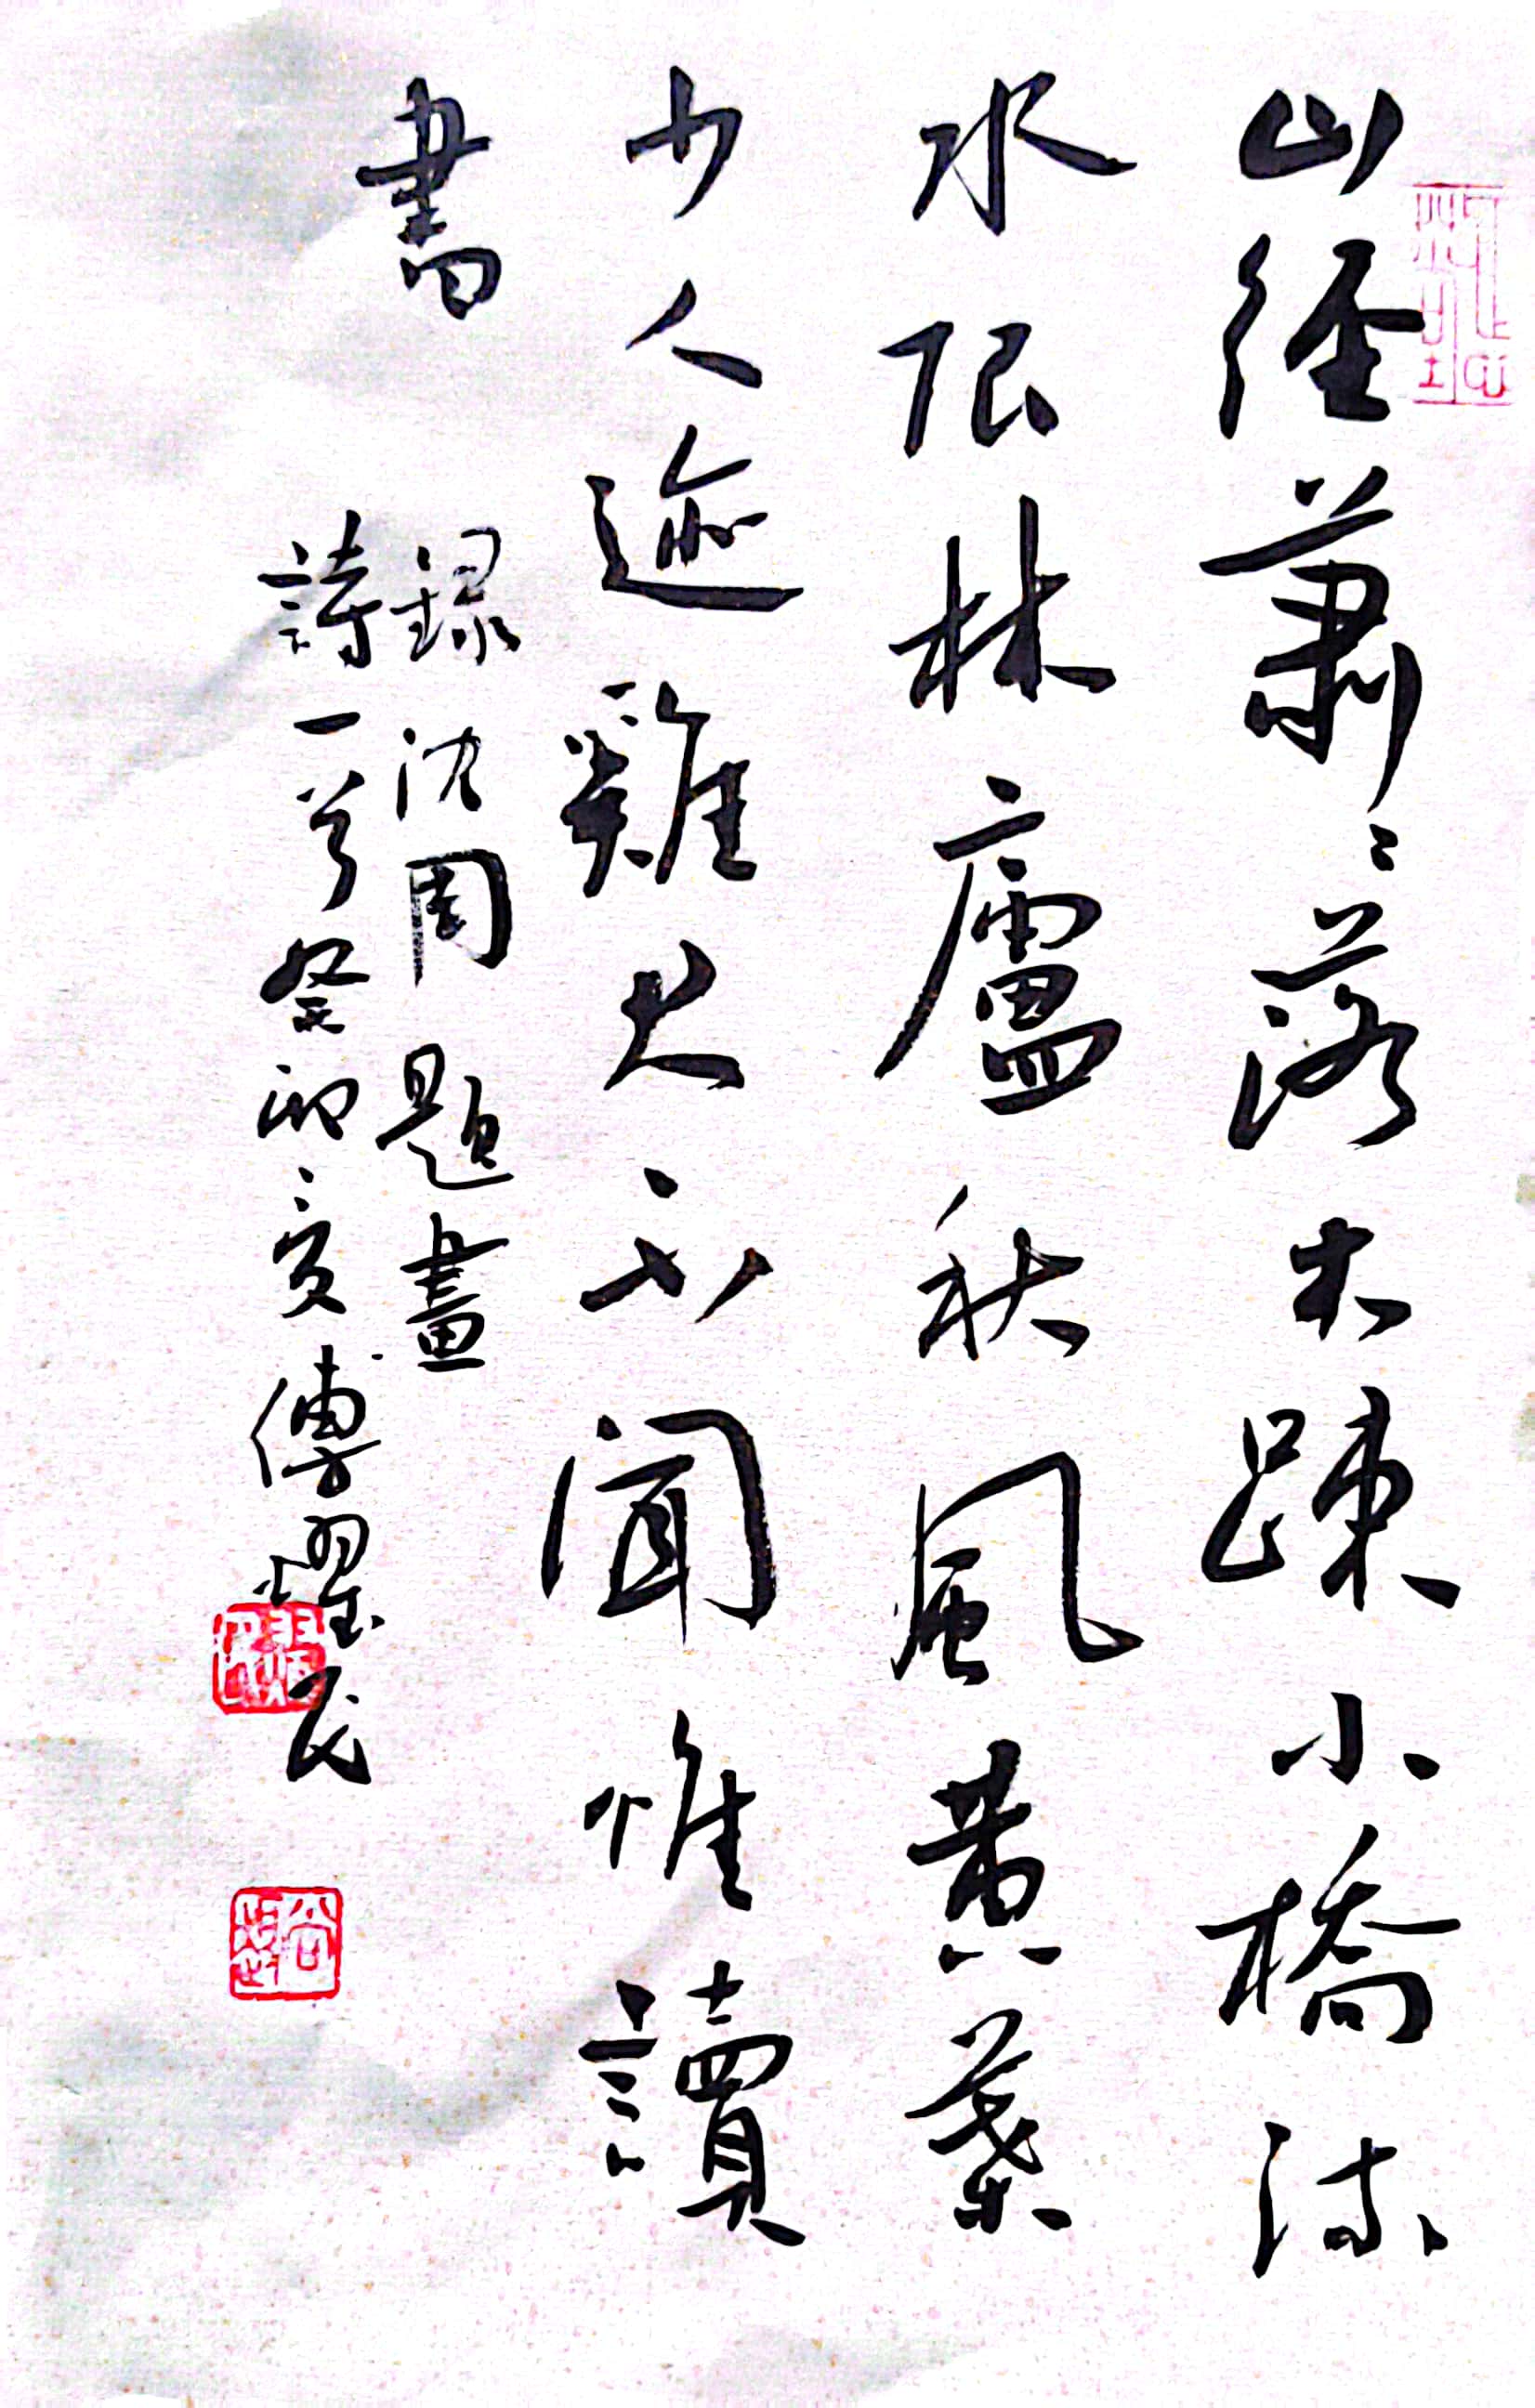 山徑蕭〻落木疎小橋流
水限林廬秋風黄葉
少人迹雞犬不聞惟讀
書
録沈周題畫
詩一首癸卯夏傅耀民